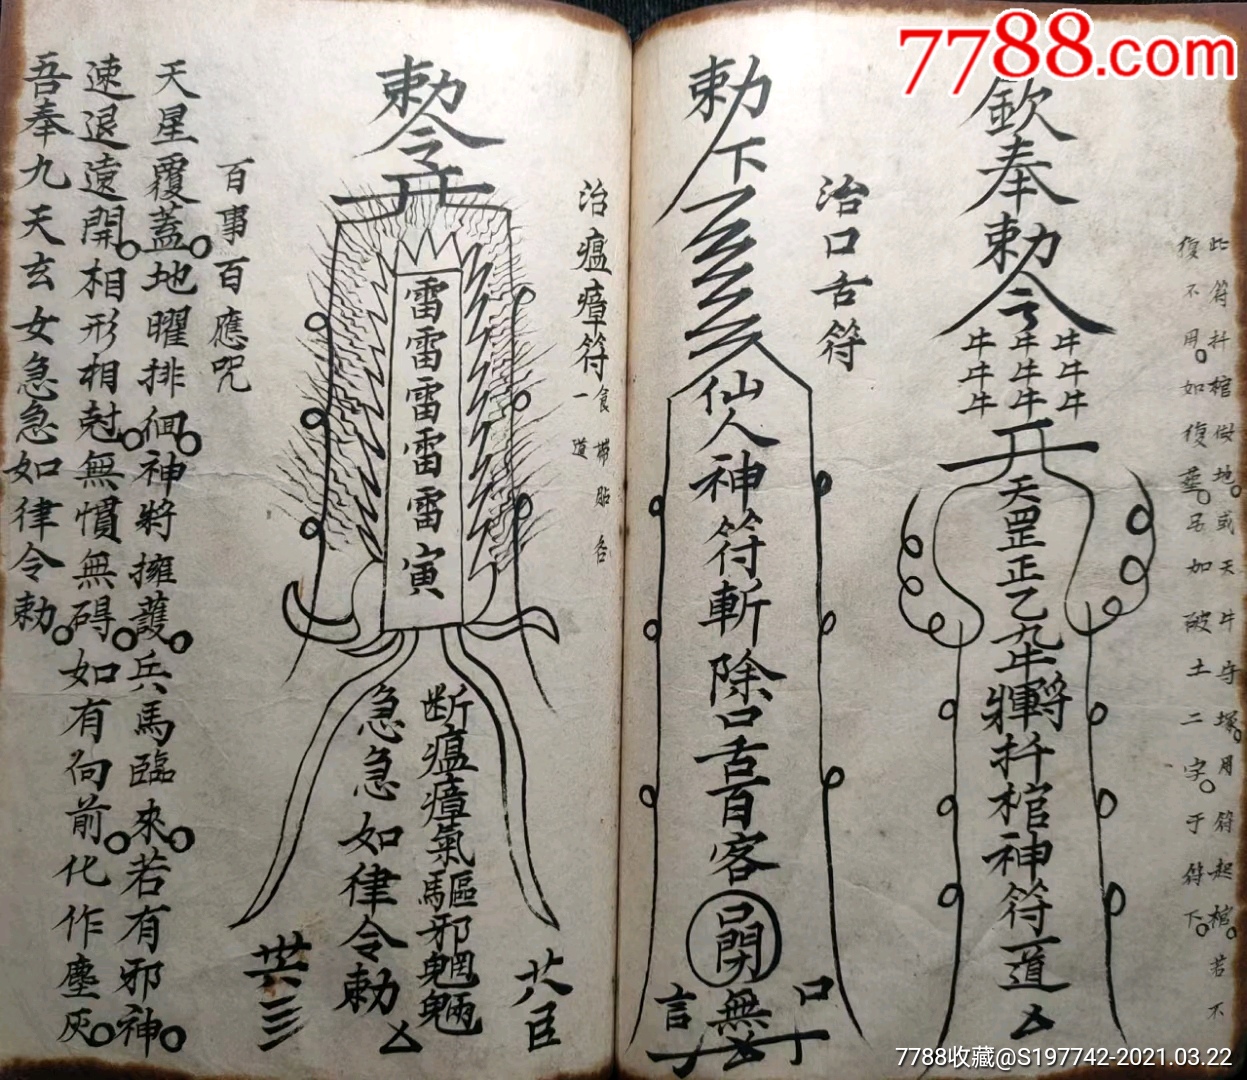 7788.com
此符扦棺做地或天牛守塚用符起棺若不
復不用如復葬另如破土二字于符下
欽奉勅令
天罡正乙
扦棺神符一道
治口舌符
勅下
仙人神符斬除口舌百客
無
口
言
治瘟瘴符
食帶貼各一道
勅令
雷雷雷雷雷寅
断瘟瘴氣驅邪魍魎
急急如律令勅
百事百應咒
天星覆蓋地曜排徊神將擁護兵馬臨來若有邪神
速退遠開相形相尅無慣無碍如有向前化作塵灰
吾奉九天玄女急急如律令勅
7788收藏@S197742-2021.03.22